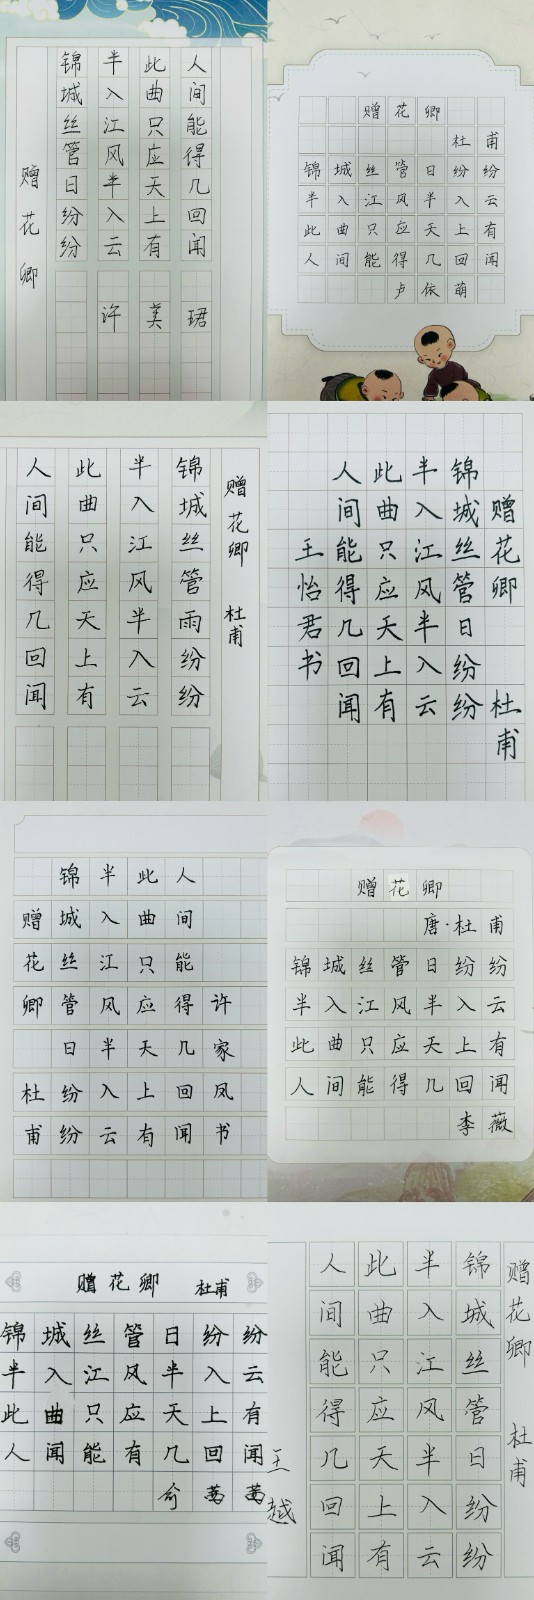 赠花卿
锦城丝管日纷纷
半入江风半入云
此曲只应天上有
人间能得几回闻
许美珺
赠花卿
杜甫
锦城丝管日纷纷
半入江风半入云
此曲只应天上有
人间能得几回闻
卢依萌
赠花卿 杜甫
锦城丝管雨纷纷
半入江风半入云
此曲只应天上有
人间能得几回闻
赠花卿 杜甫
锦城丝管日纷纷
半入江风半入云
此曲只应天上有
人间能得几回闻
王怡君书
赠花卿 杜甫
锦城丝管日纷纷
半入江风半入云
此曲只应天上有
人间能得几回闻
许家凤书
赠花卿
唐·杜甫
锦城丝管日纷纷
半入江风半入云
此曲只应天上有
人间能得几回闻
李薇
赠花卿 杜甫
锦城丝管日纷纷
半入江风半入云
此曲只应天上有
人闻能有几回闻
俞茜茜
赠花卿 杜甫
锦城丝管日纷纷
半入江风半入云
此曲只应天上有
人间能得几回闻
王越